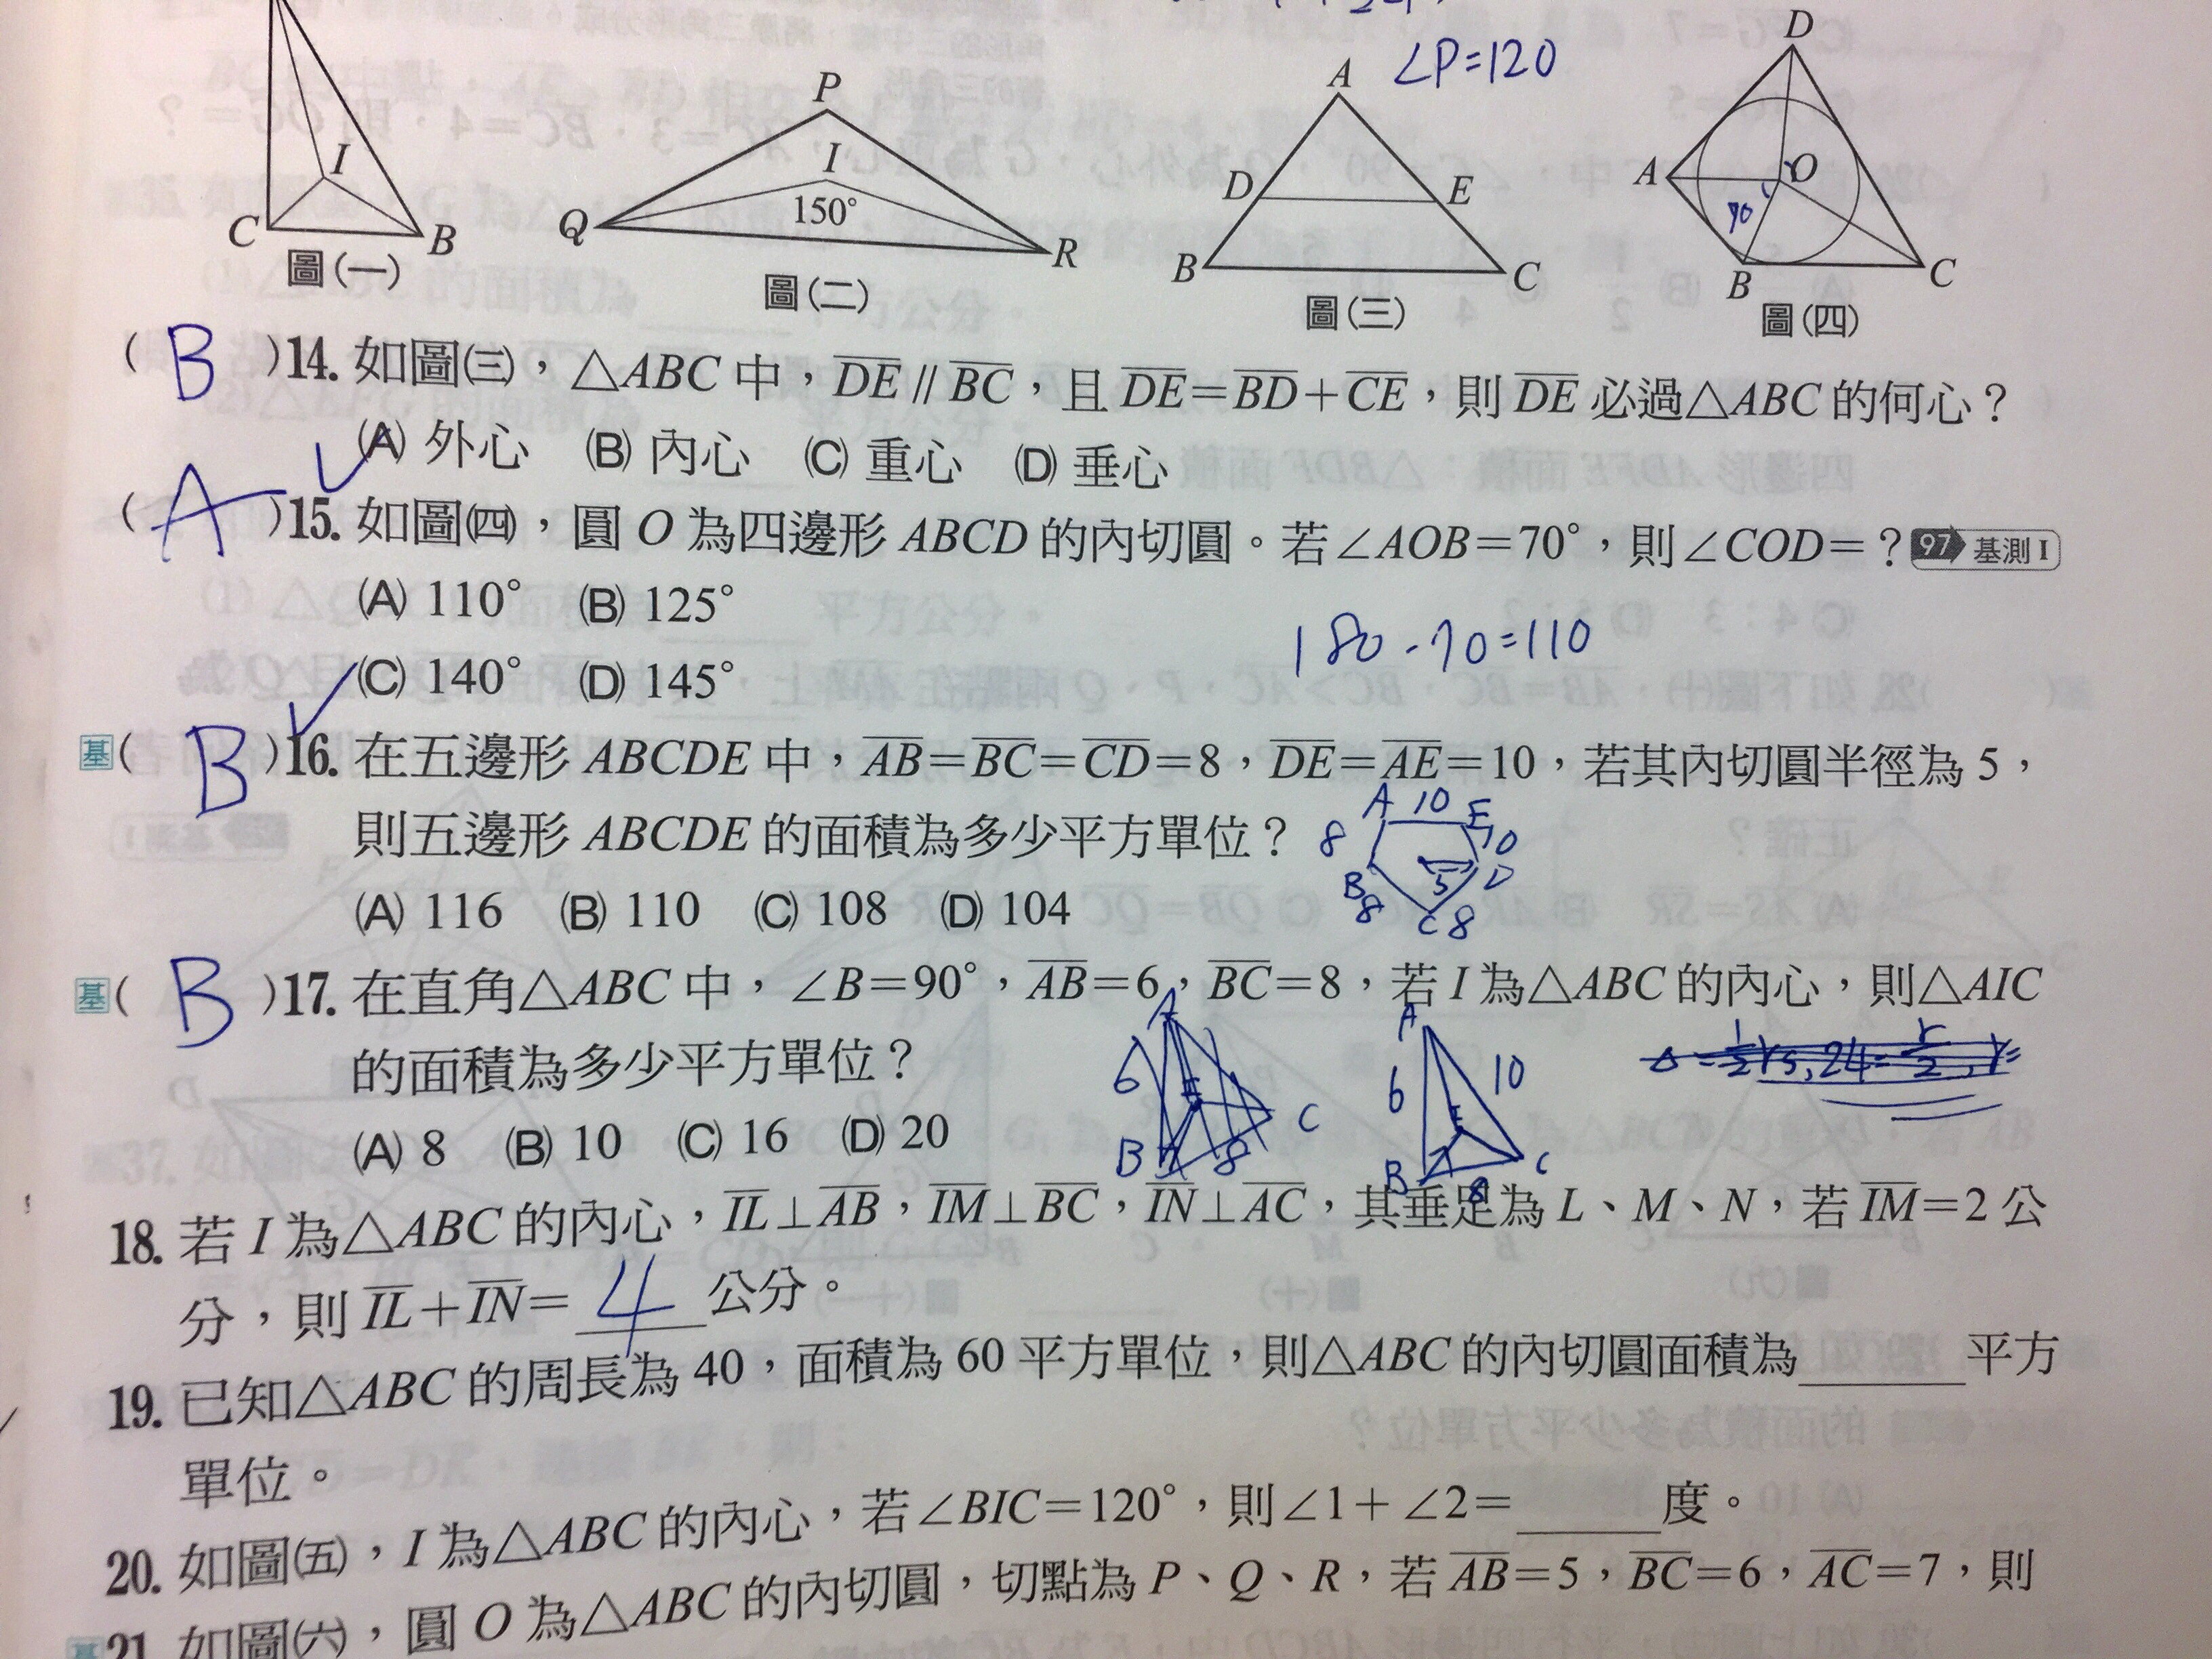 ∠P=120
A
D
P
I
C
B
圖(一)
I
150°
Q
R
圖(二)
D
E
B
C
圖(三)
A
O
70
B
C
圖(四)
( B )14. 如圖㈢，△ABC 中，DE // BC，且 DE=BD+CE，則 DE 必過△ABC 的何心？
(A) 外心 (B) 內心 (C) 重心 (D) 垂心
( A )15. 如圖㈣，圓 O 為四邊形 ABCD 的內切圓。若∠AOB=70°，則∠COD=？ 97 基測 I
(A) 110° (B) 125°
180-70=110
(C) 140° (D) 145°
基( B )16. 在五邊形 ABCDE 中，AB=BC=CD=8，DE=AE=10，若其內切圓半徑為 5，
則五邊形 ABCDE 的面積為多少平方單位？
A 10 E
8 10
B 5 D
8 C 8
(A) 116 (B) 110 (C) 108 (D) 104
基( B )17. 在直角△ABC 中，∠B=90°，AB=6，BC=8，若 I 為△ABC 的內心，則△AIC
的面積為多少平方單位？
A
6
B 8 C
A
6 10
I
B 8 C
(A) 8 (B) 10 (C) 16 (D) 20
18. 若 I 為△ABC 的內心，IL⊥AB，IM⊥BC，IN⊥AC，其垂足為 L、M、N，若 IM=2 公
分，則 IL+IN= 4 公分。
19. 已知△ABC 的周長為 40，面積為 60 平方單位，則△ABC 的內切圓面積為______平方
單位。
20. 如圖㈤，I 為△ABC 的內心，若∠BIC=120°，則∠1+∠2=______度。
基21. 如圖㈥，圓 O 為△ABC 的內切圓，切點為 P、Q、R，若 AB=5，BC=6，AC=7，則